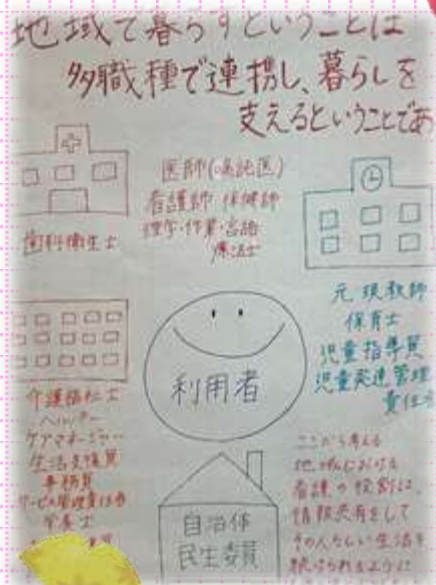 地域で暮らすということは
多職種で連携し、暮らしを
支えるということであ
医師(嘱託医)
看護師 保健師
理学・作業・言語
療法士
歯科衛生士
元 現教師
保育士
児童指導員
児童発達管理
責任者
利用者
介護福祉士
ヘルパー
ケアマネージャー
生活支援員
事務員
サービス管理責任者
栄養士
自治体
民生委員
ここから考える
地域における
看護の役割は、
情報共有をして
その人らしい生活を
続けられるように